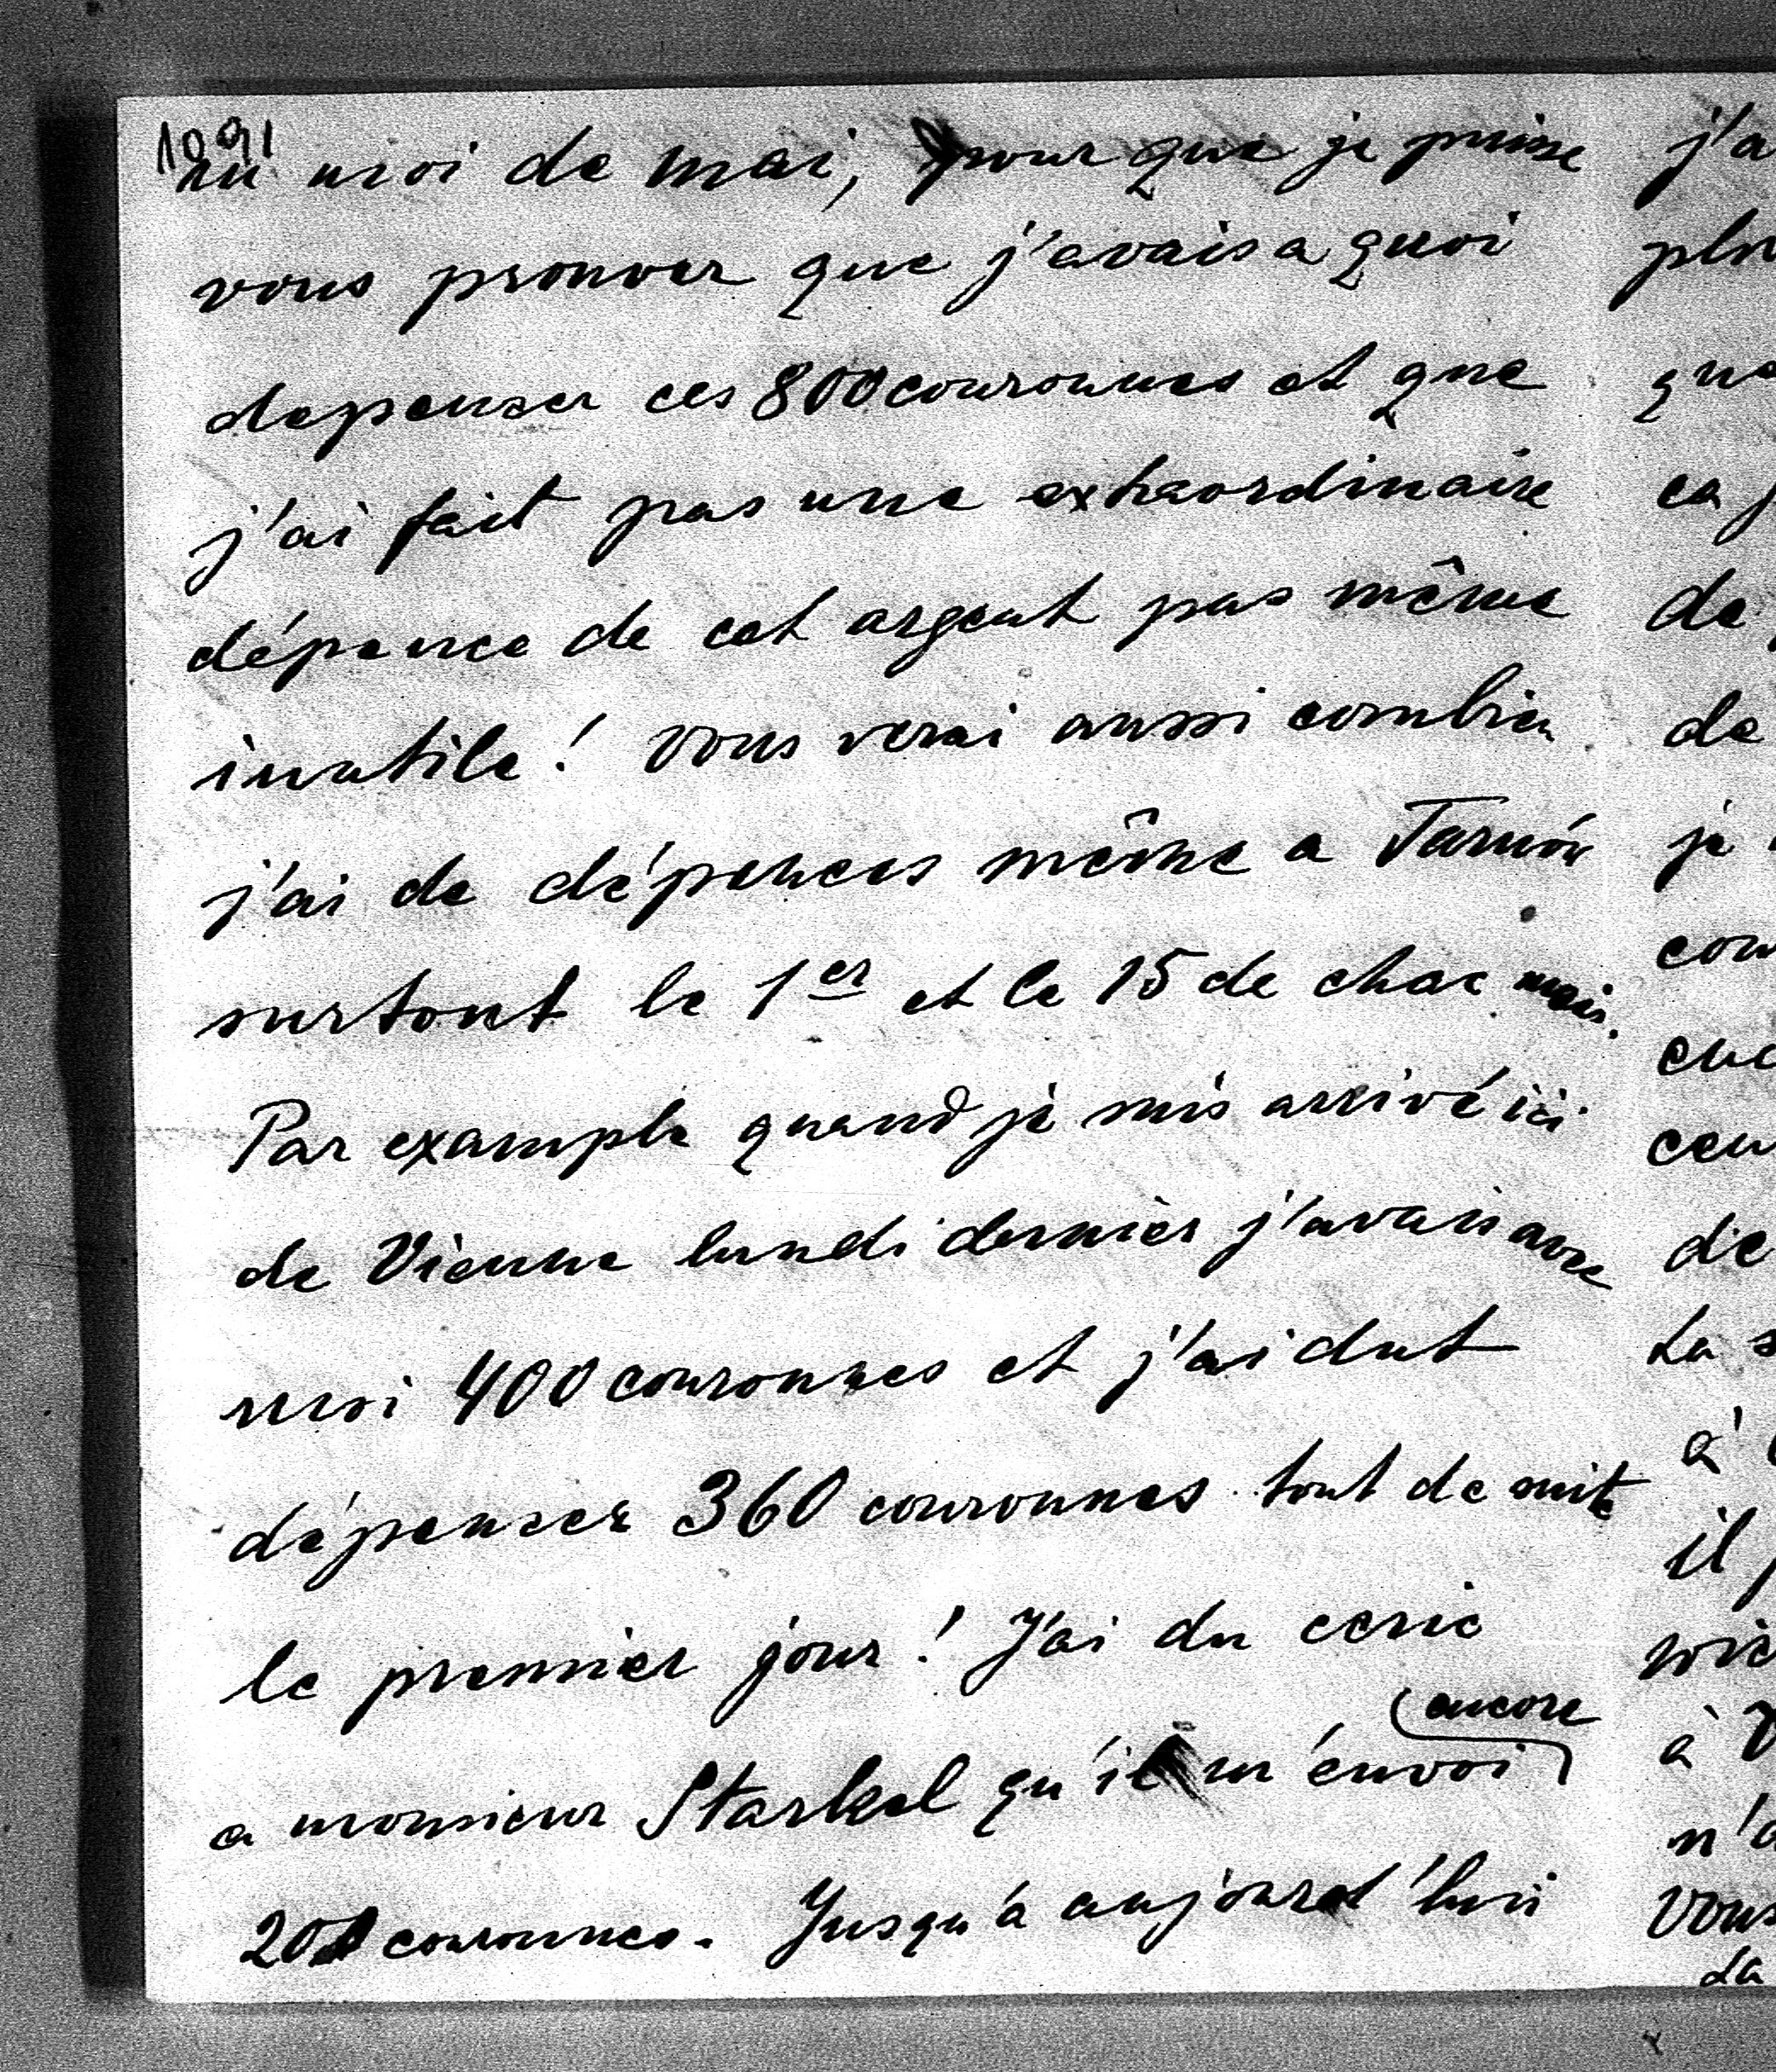 1091
au moi de mai, pour que je puisse
vous prouver que j'avais a quoi
depenser ces 800 couronnes et que
j'ai fait pas une extraordinaire
dépence de cet argent pas même
inutile! Vous verai aussi combien
j'ai de dépences même a Tarnów
surtout le 1er et le 15 de chac mois.
Par example quand je suis arrivé ici
de Vienne lundi dernièr j'avais avec
moi 400 couronnes et j'ai dut
dépenser 360 couronnes tout de suite
le premier jour! J'ai du ecrie
a monsieur Starkel qu'il m'envoi encore
200 couronnes. Jusqu'a aujourd'hui
j'a
plu
que
ca
de
de
je
com
enc
cen
de
La s
à
il
à V
n'a
vous
La